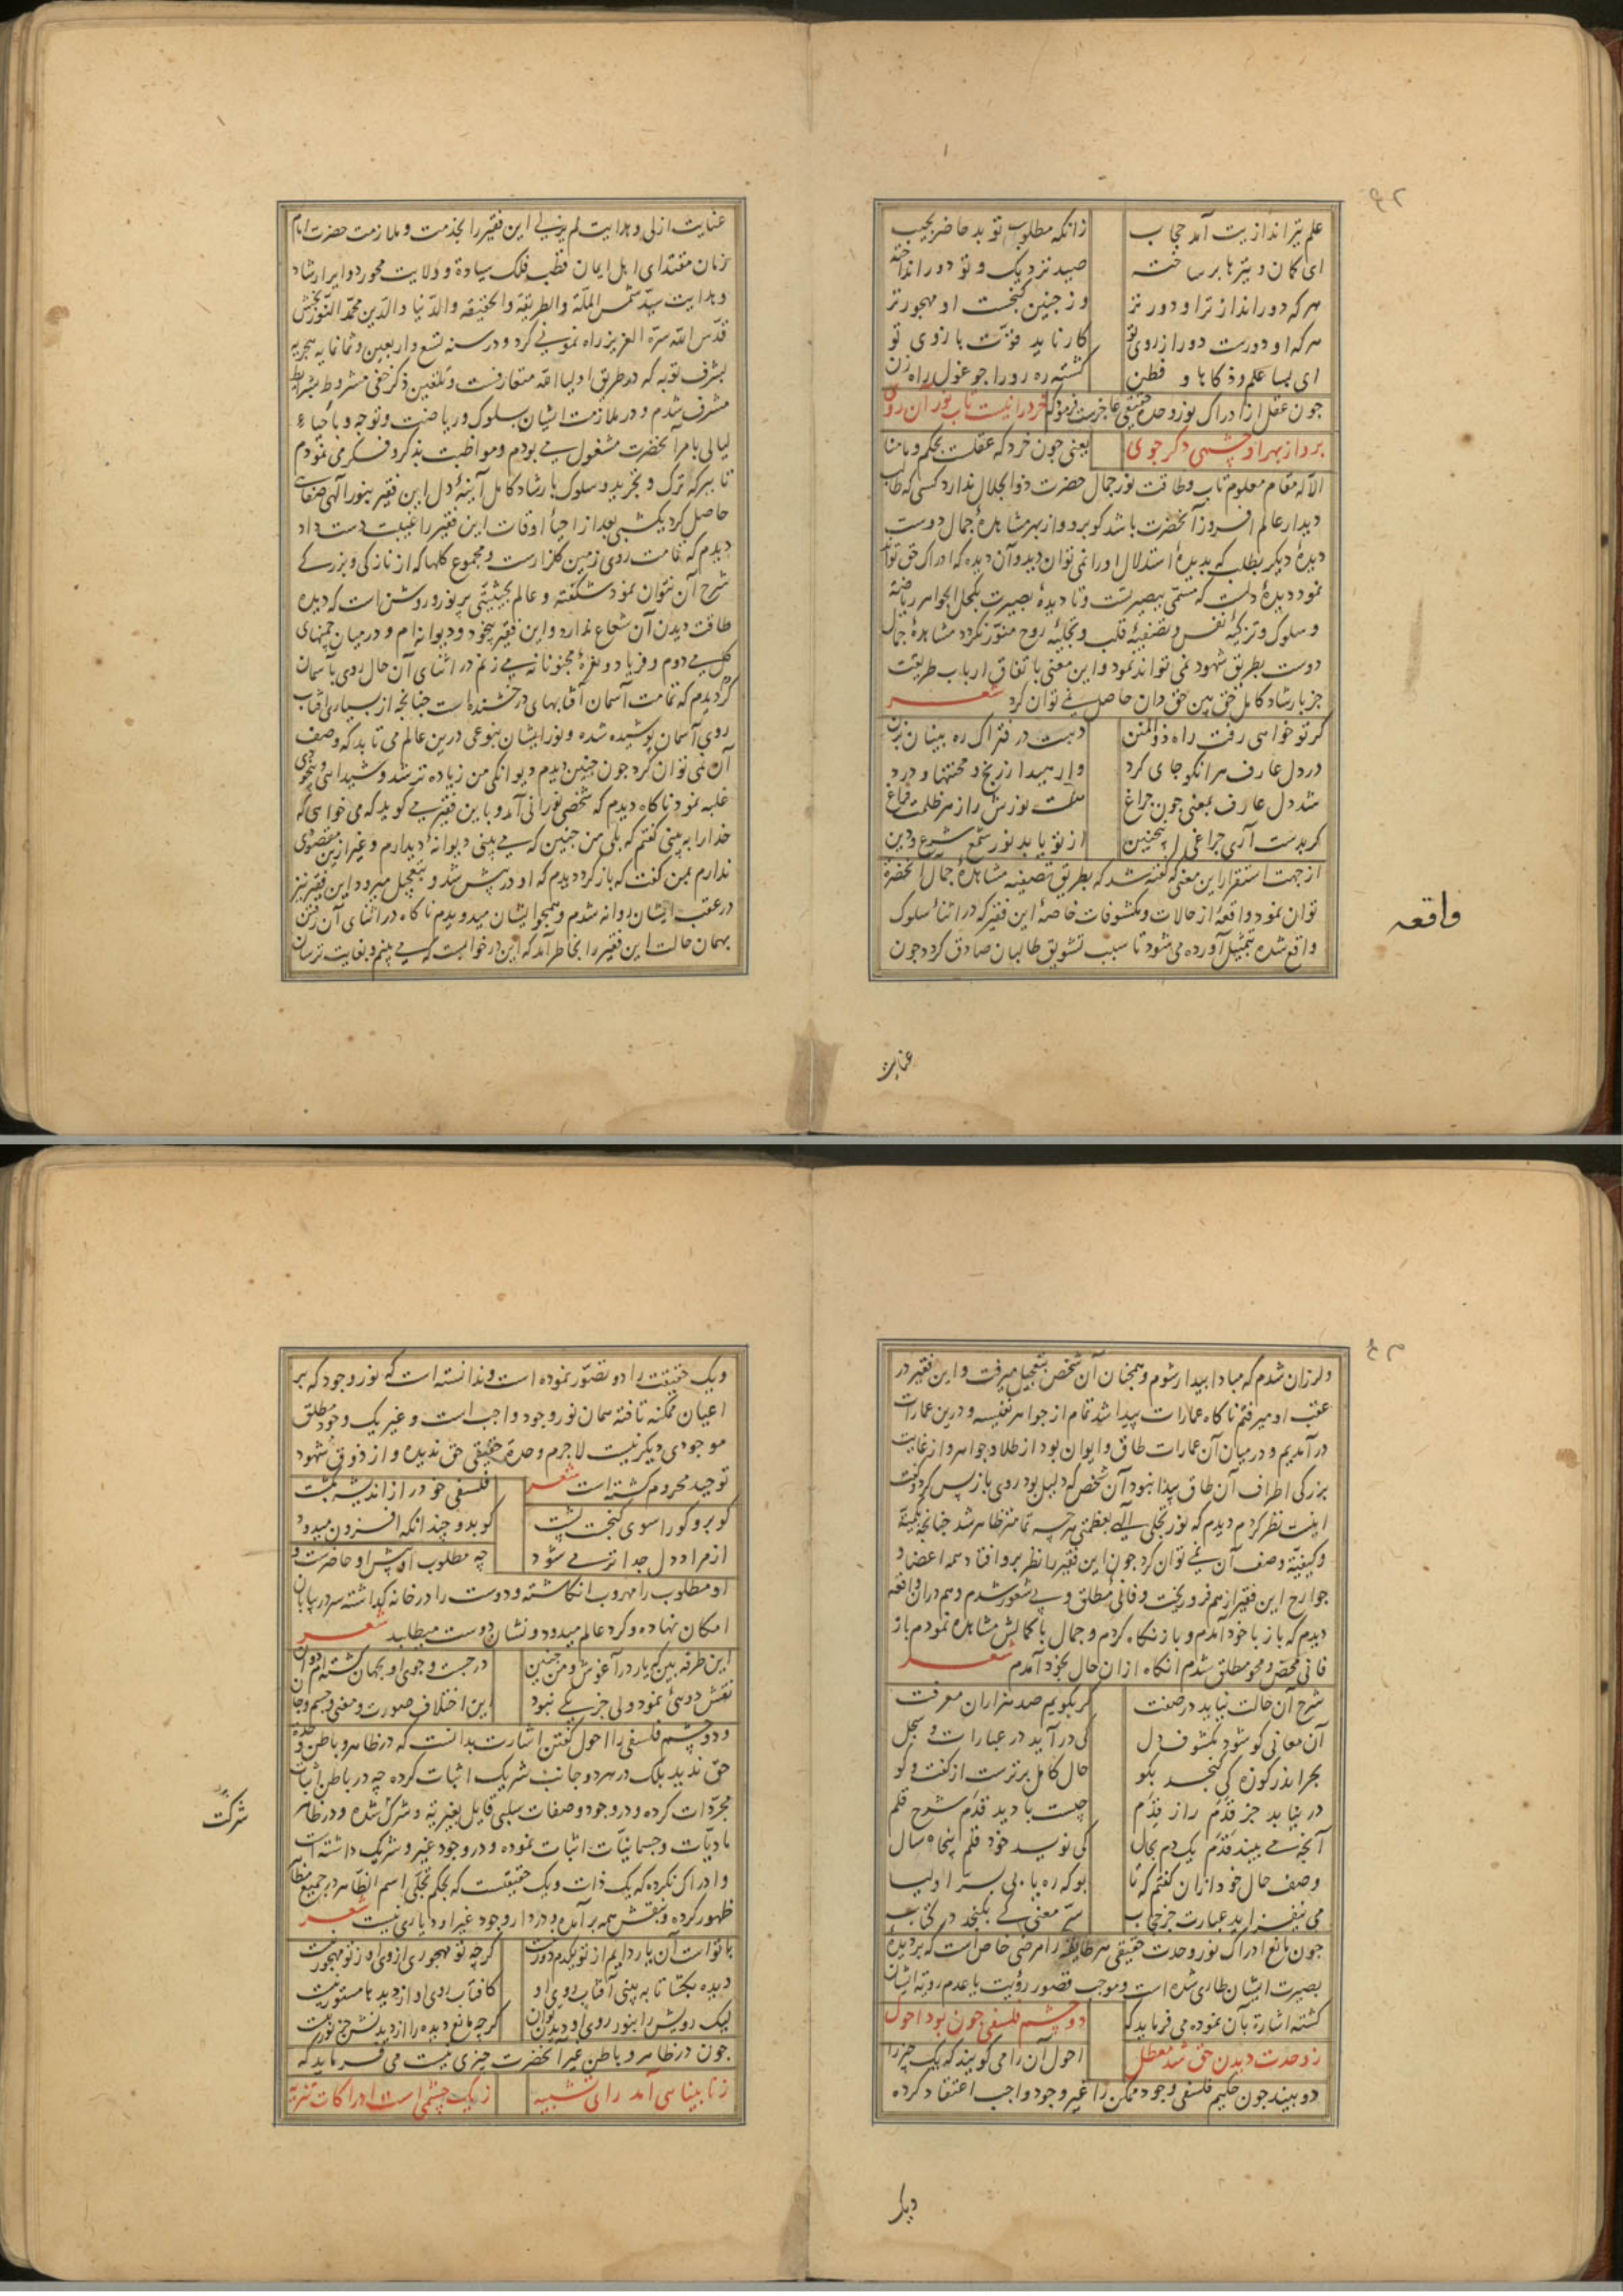 علم تیراندازیت آمد حجاب
زانکه مطلوب تو بد حاضر بجیب
ای کمان و تیرها بر ساخته
صید نزدیک و تو دور انداخته
هرکه دور اندازتر او دورتر
وز چنین گنجست او مهجورتر
هرکه او دورست دور از روی تو
کار ناید قوّت بازوی تو
ای بسا علم و ذکاها و فطن
گشته ره رو را چو غول راه زن
چون عقل از ادراک نور وحدة حقیقی عاجزست فرمود که خرد را نیست تاب نور آن روی
برو از بهر او چشمی دگر جوی
یعنی چون خرد که عقلست بحکم وما منا
الا له مقام معلوم تاب و طاقت نور جمال حضرت ذوالجلال ندارد کسی که طالب
دیدار عالم افروز آنحضرت باشد کو برو و از بهر مشاهدهٔ جمال دوست
دیدهٔ دیگر بطلب که بدیدهٔ استدلال او را نمی توان دید و آن دیده که ادراک حق تواند
نمود دیدهٔ دلست که مسمّی ببصیرتست و تا دیدهٔ بصیرت بکحل الجواهر ریاضة
و سلوک و تزکیهٔ نفس و تصفیهٔ قلب و تجلیهٔ روح منوّر نگردد مشاهدهٔ جمال
دوست بطریق شهود نمی تواند نمود و این معنی باتفاق ارباب طریقت
جز بارشاد کامل حق بین حق دان حاصل نمی توان کرد شعر
گر تو خواهی رفت راه ذوالمنن
دست در فتراک ره بینان بزن
در دل عارف هر آنکو جای کرد
وارهید از رنج و محنتها و درد
شد دل عارف بمعنی چون چراغ
هست نورش را ز هر ظلمت فراغ
گر بدست آری چراغی اینچنین
از تو یابد نور شمع شرع و دین
از جهت استقرار این معنی که گفته شد که بطریق تصفیه مشاهدهٔ جمال آنحضرة
توان نمود واقعهٔ از حالات و مکشوفات خاصهٔ این فقیر که در اثناء سلوک
واقع شده بتمثیل آورده می شود تا سبب تشویق طالبان صادق گردد چون
واقعه
عنایت
عنایت ازلی و هدایت لم یزلی این فقیر را بخدمت و ملازمت حضرت امام
زمان مقتدای اهل ایمان قطب فلک سیادة و ولایت محور دوایر ارشاد
و هدایت سید شمس الملّة والطریقة والحقیقه والدّنیا والدّین محمد النّوربخش
قدّس الله سرّه العزیز راه نمونی کرد و در سنه تسع و اربعین و ثمانمایه هجریه
بشرف توبه که در طریق اولیاءالله متعارفست و تلقین ذکر خفی مشروط بشرایط
مشرف شدم و در ملازمت ایشان بسلوک و ریاضت و توجه و باحیاء
لیالی بامر آنحضرت مشغول می بودم و مواظبت بذکر و فکر می نمودم
تا ببرکه ترک و تجرید و سلوک بارشاد کامل آینهٔ دل این فقیر بنور الهی صفایی
حاصل کرد یکشبی بعد از احیاء اوقات این فقیر را غیبت دست داد
دیدم که تمامت روی زمین گلزارست و مجموع گلها که از نازکی و بزرگی
شرح آن نتوان نمود شکفته و عالم بحیثیتی پرنور و روشن است که دیده
طاقت دیدن آن شعاع ندارد و این فقیر بیخود و دیوانه ام و در میان چمنهای
گل می دوم و فریاد و نعرهٔ مجنونانه می زنم در اثنای آن حال روی بآسمان
کردم دیدم که تمامت آسمان آفتابهای درخشنده است چنانچه از بسیاری آفتاب
روی آسمان پوشیده شده و نور ایشان بنوعی درین عالم می تابد که وصف
آن نمی توان کرد چون چنین دیدم دیوانگی من زیاده تر شد و شیدایی و بیخودی
غلبه نمود ناگاه دیدم که شخصی نورانی آمد و باین فقیر می گوید که می خواهی که
خدا را به بینی گفتم که بلی من چنین که می بینی دیوانهٔ دیدارم و غیر ازین مقصودی
ندارم بمن گفت که باز گرد دیدم که او در پیش شد و بتعجیل میرود این فقیر نیز
در عقب ایشان روانه شدم و همچو ایشان میدویدم ناگاه در اثنای آن رفتن
بهمان حالت این فقیر را بخاطر آمد که این در خوابست که می بینم و بغایت ترسان
و لرزان شدم که مبادا بیدار شوم و همچنان آن شخص بتعجیل میرفت و این فقیر در
عقب او میرفتم ناگاه عمارات پیدا شد تمام از جواهر نفیسه و درین عمارات
در آمدیم و در میان آن عمارات طاق و ایوان بود از طلا و جواهر و از غایت
بزرگی اطراف آن طاق پیدا نبود آن شخص که دلیل بود روی بازپس کرد و گفت
اینست نظر کردم دیدم که نور تجلی الهی بعظمتی هرچه تمامتر ظاهر شد چنانچه کمیّة
و کیفیّة وصف آن نمی توان کرد چون این فقیر را نظر برو افتاد همه اعضا و
جوارح این فقیر از هم فرو ریخت و فانی مطلق و بی شعور شدم و هم در آن واقعه
دیدم که باز با خود آمدم و باز نگاه کردم و جمال با کمالش مشاهده نمودم باز
فانی محض و محو مطلق شدم آنگاه از آن حال بخود آمدم شعر
شرح آن حالت نیاید در صفت
گر بگویم صد هزاران معرفت
آن معانی کو شود مکشوف دل
کی در آید در عبارات و سجل
بحر اندر کوزه کی گنجد بگو
حال کامل برترست از گفت و گو
در نیابد جز قِدَم راز قِدَم
چیست با دید قدم شرح قلم
آنچه می بیند قدم یک دم بحال
کی نویسد خود قلم پنجاه سال
وصف حال خود از آن گفتم که تا
بو که ره یابی بسرّ اولیا
می نیفزاید عبارت جز حجاب
سرّ معنی کی بگنجد در کتاب
چون مانع ادراک نور وحدت حقیقی هر طایفه را مرضی خاص است که بر دیدهٔ
بصیرت ایشان طاری شده است و موجب قصور رؤیت یا عدم رویة ایشان
گشته اشارة بآن نموده می فرماید که
دو چشم فلسفی چون بود احول
ز وحدت دیدن حق شد معطل
احول آن را می گویند که یک چیز را
دو بیند چون حکیم فلسفی وجود ممکن را غیر وجود واجب اعتقاد کرده
ویک
ویک حقیقت را دو تصوّر نموده است و ندانسته است که نور وجود که بر
اعیان ممکنه تافته همان نور وجود واجب است و غیر یک وجود مطلق
موجودی دیگر نیست لاجرم وحدة حقیقی حق ندیده و از ذوق شهود
توحید محروم گشته است شعر
فلسفی خود را از اندیشه بکشت
گو برو کو را سوی گنجست پشت
گو بدو چندانکه افزون میدود
از مراد دل جداتر می شود
چه مطلوب او پیش او حاضرست و
او مطلوب را مهروب انگاشته و دوست را در خانه گذاشته سر در بیابان
امکان نهاده و گرد عالم میدود و نشان دوست میطلبد شعر
این طرفه بین که یار در آغوش و من چنین
در جست و جوی او بجهان گشته ام دوان
نقش دوئی نمود ولی جز یکی نبود
این اختلاف صورت و معنی و جسم و جان
و دو چشم فلسفی را احول گفتن اشارت بدانست که در ظاهر و باطن وحدة
حق ندید بلک در هر دو جانب شریک اثبات کرده چه در باطن اثبات
مجرّدات کرده و در وجود و صفات سلبی قایل بغیریّة و شرک شده و در ظاهر
مادیّات و جسمانیّات اثبات نموده و در وجود غیر و شریک داشته است
و ادراک نکرده که یک ذات و یک حقیقتست که بحکم تجلّی اسم الظاهر در جمیع مظاهر
ظهور کرده و بنقش همه برآمده و در دار وجود غیر او دیّاری نیست شعر
با تو است آن یار دایم از تو یکدم دور نیست
گرچه تو مهجوری از وی او ز تو مهجور نیست
دیده بگشا تا به بینی آفتاب روی او
کافتاب روی او از دیدها مستور نیست
لیک رویش را بنور روی او دیدن توان
گرچه مانع دیده را از دیدنش جز نور نیست
چون در ظاهر و باطن غیر آنحضرت چیزی نیست می فرماید که
ز نابینایی آمد رای تشبیه
ز یک چشمی است ادراکات تنزیه
شرکت